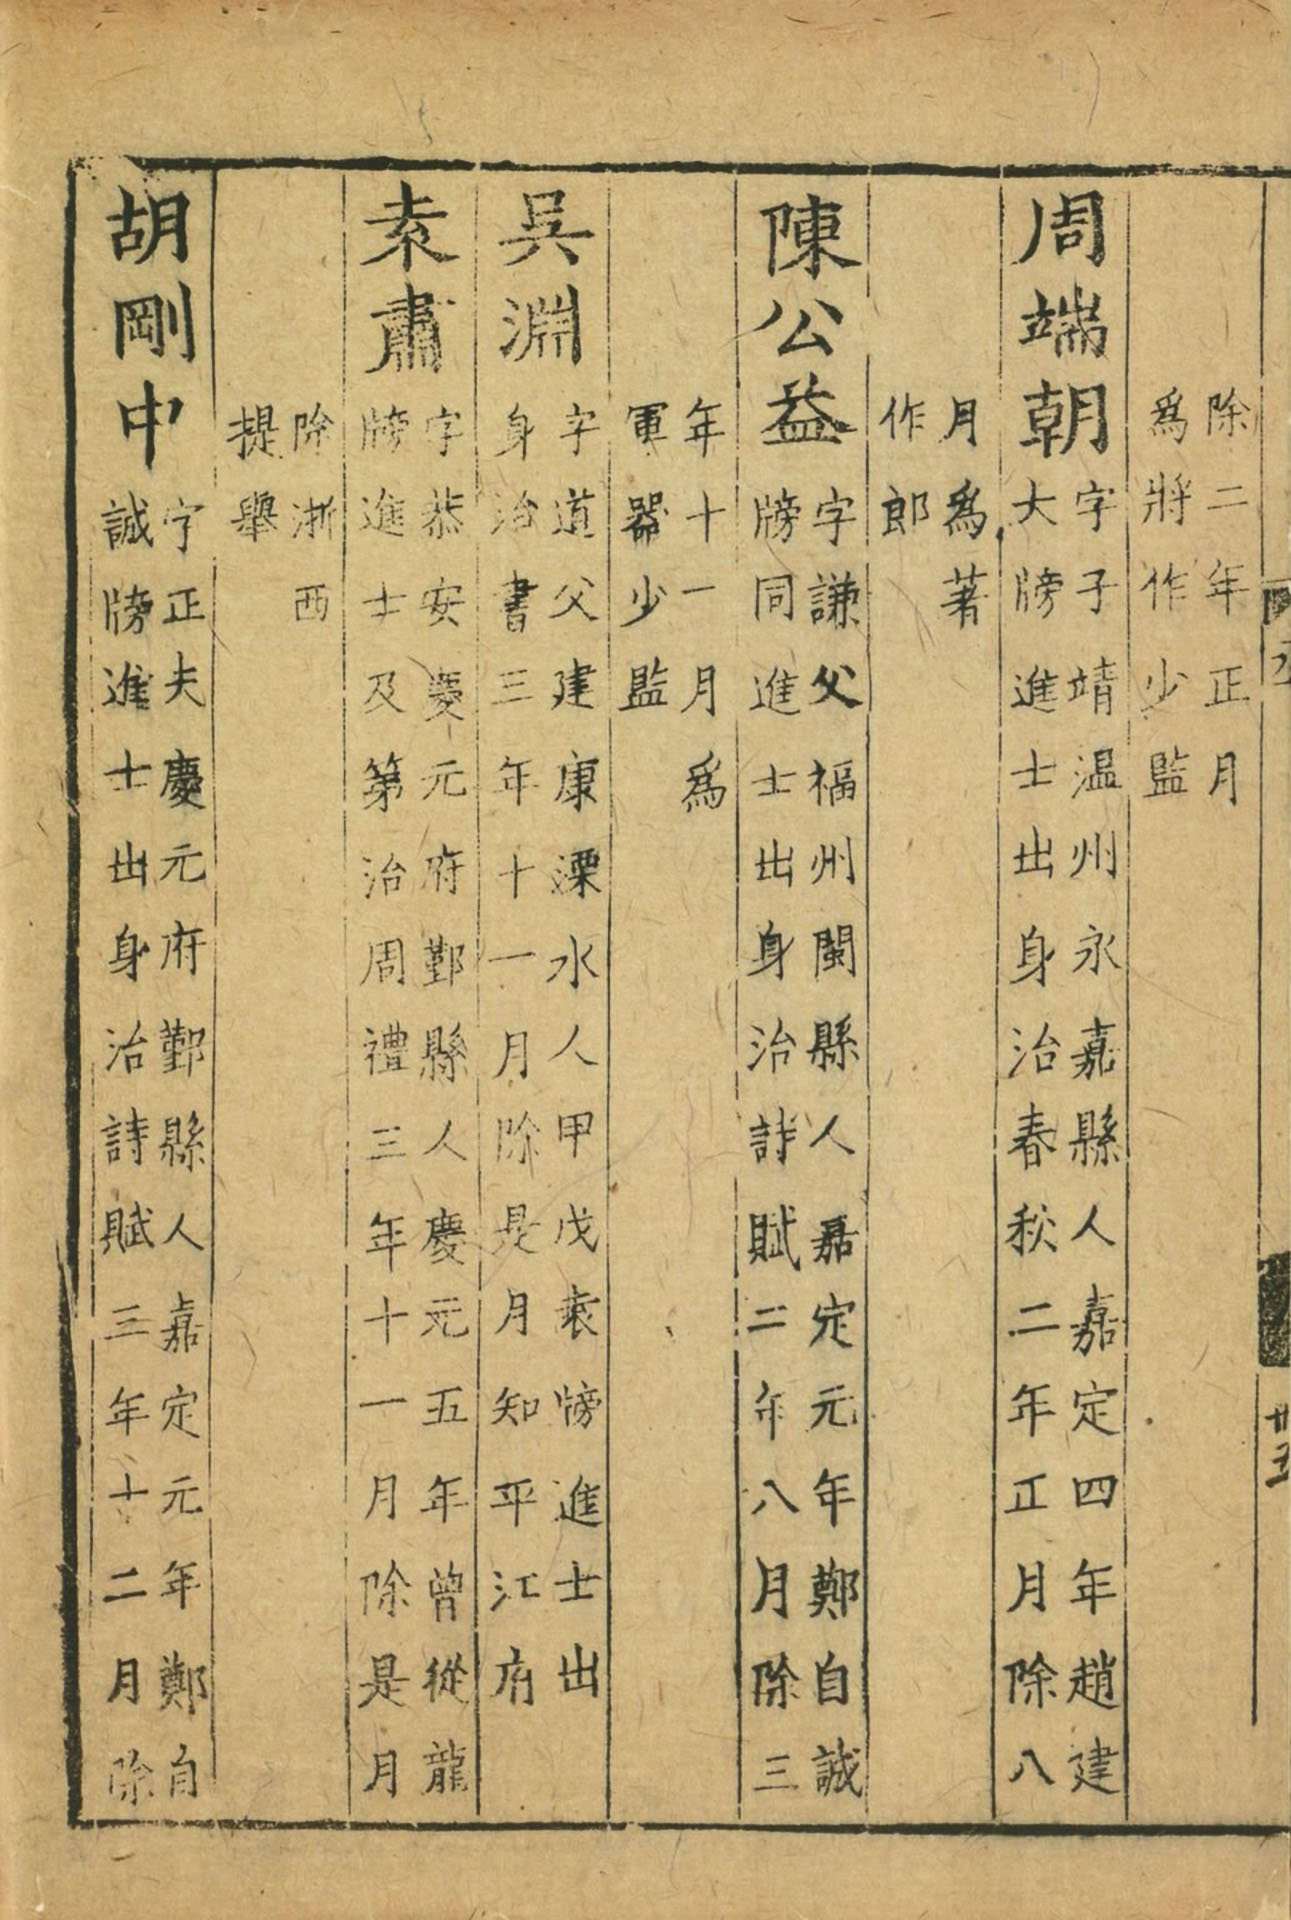 除二年正月
爲將作少監
周端朝
字子靖温州永嘉縣人嘉定四年趙建
大牓進士出身治春秋二年正月除八
月爲著
作郎
陳公益
字謙父福州閩縣人嘉定元年鄭自誠
牓同進士出身治詩賦二年八月除三
年十一月爲
軍器少監
吳淵
字道父建康溧水人甲戌袁牓進士出
身治書三年十一月除是月知平江府
袁肅
字恭安慶元府鄞縣人慶元五年曾從龍
牓進士及第治周禮三年十一月除是月
除浙西
提舉
胡剛中
字正夫慶元府鄞縣人嘉定元年鄭自
誠牓進士出身治詩賦三年十二月除
廿五